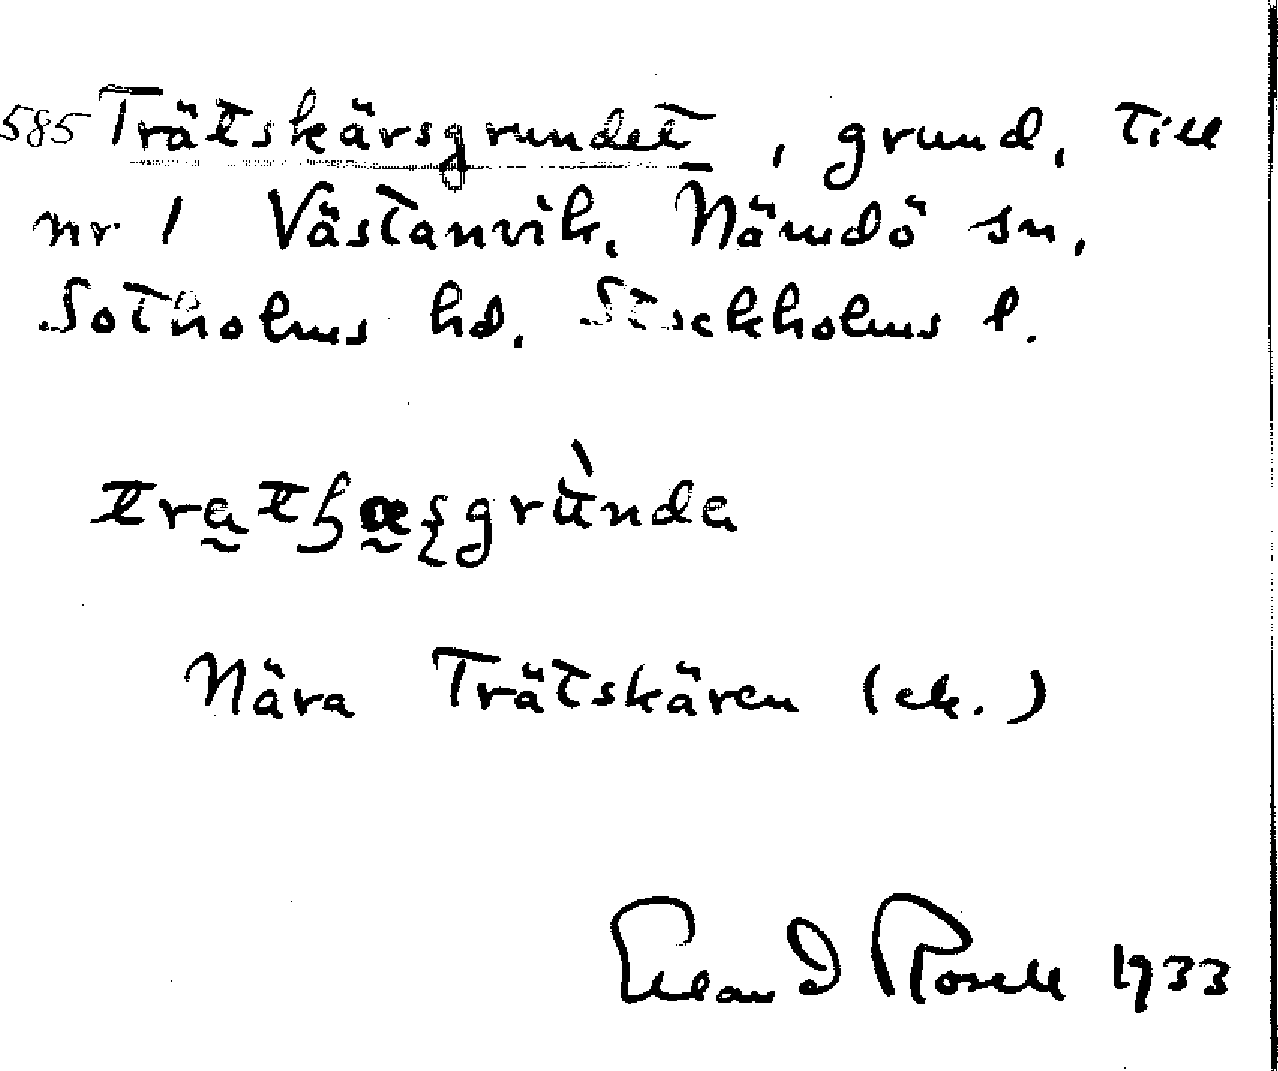 585 Trätskärsgrundet, grund, till
nr 1 Västanvik, Nämdö sn,
Sotholms hd. Stockholms l.
Nära Trätskären (ek.)
Rosell 1933